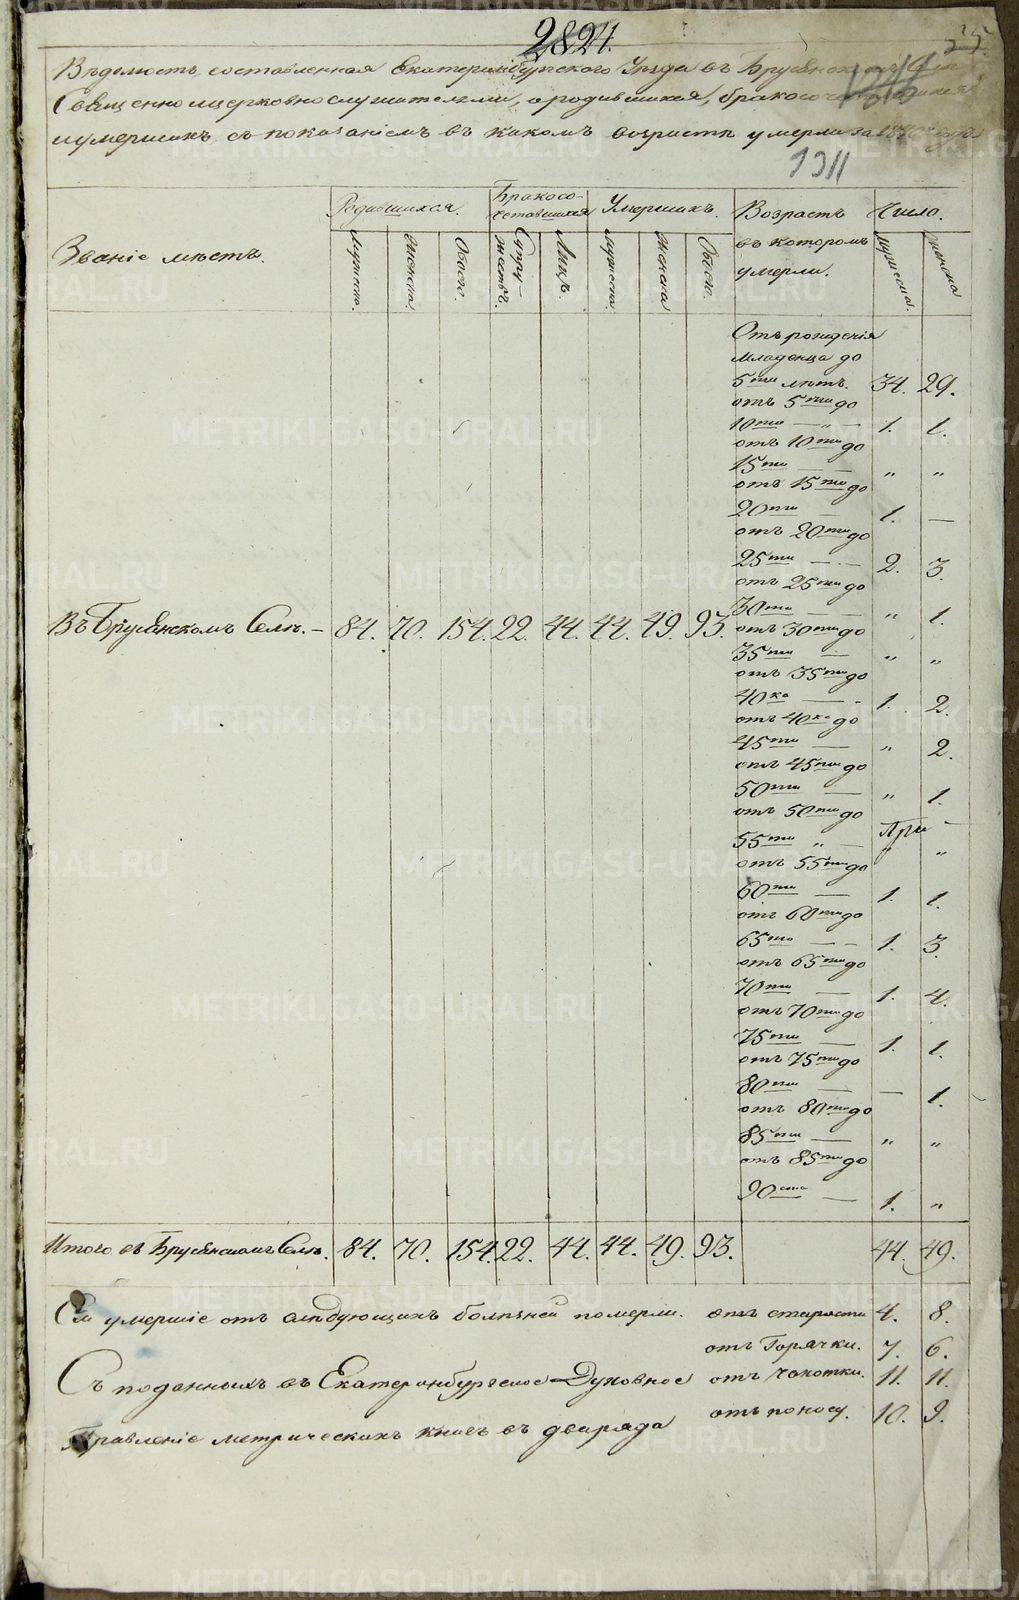 2824.
Вѣдомость, составленная Екатеринбургского Уѣзда въ Брусянском
Священноицерковнослужителями, ородившихся, бракосочетавшихся
иумершихъ съ показаніемъ въ какомъ возрастѣ умерли за года
1311
Званіе мѣстъ.
Родившихся.
Бракосо-
четавшихся
Умершихъ.
Возрастъ
въ которомъ
умерли.
Число.
мужеска.
женска.
Обоего.
Супру-
жествъ.
Лицъ.
мужеска.
женска
Обоего.
мужеска.
женска
Отъ рожденія
младенца до
5ти лѣтъ. 34. 29.
отъ 5ти до
10ти — „ — 1. 1.
отъ 10ти до
15ти — — „ „
отъ 15ти до
20ти — 1. —
отъ 20ти до
25ти — — 2. 3.
отъ 25ти до
30ти — — „ 1.
Въ Брусянскомъ Селѣ. — 84. 70. 154. 22. 44. 44. 49. 93. отъ 30ти до
35ти — „ „
отъ 35ти до
40ка — - 1. 2.
отъ 40ка до
45ти — „ 2.
отъ 45ти до
50ти — „ 1.
отъ 50ти до
55ти „ — „ „
отъ 55ти до
60ти — 1. 1.
отъ 60ти до
65ти — - 1. 3.
отъ 65ти до
70ти — 1. 4.
отъ 70ти до
75ти — 1. 1.
отъ 75ти до
80ти — — 1.
отъ 80ти до
85ти — „ „
отъ 85ти до
90ста — 1. „
Итого въ Брусянскомъ Селѣ. 84. 70. 154. 22. 44. 44. 49. 93. 44. 49.
Сіи умершіе отъ слѣдующихъ болѣзней померли. отъ старости 4. 8.
отъ Горячки. 7. 6.
Съ поданныхъ въ Екатеринбургское Духовное отъ Чахотки. 11. 11.
отъ поносу. 10. 9.
Правленіе метрическихъ книгъ въ два ряда
METRIKI.GASO-URAL.RU